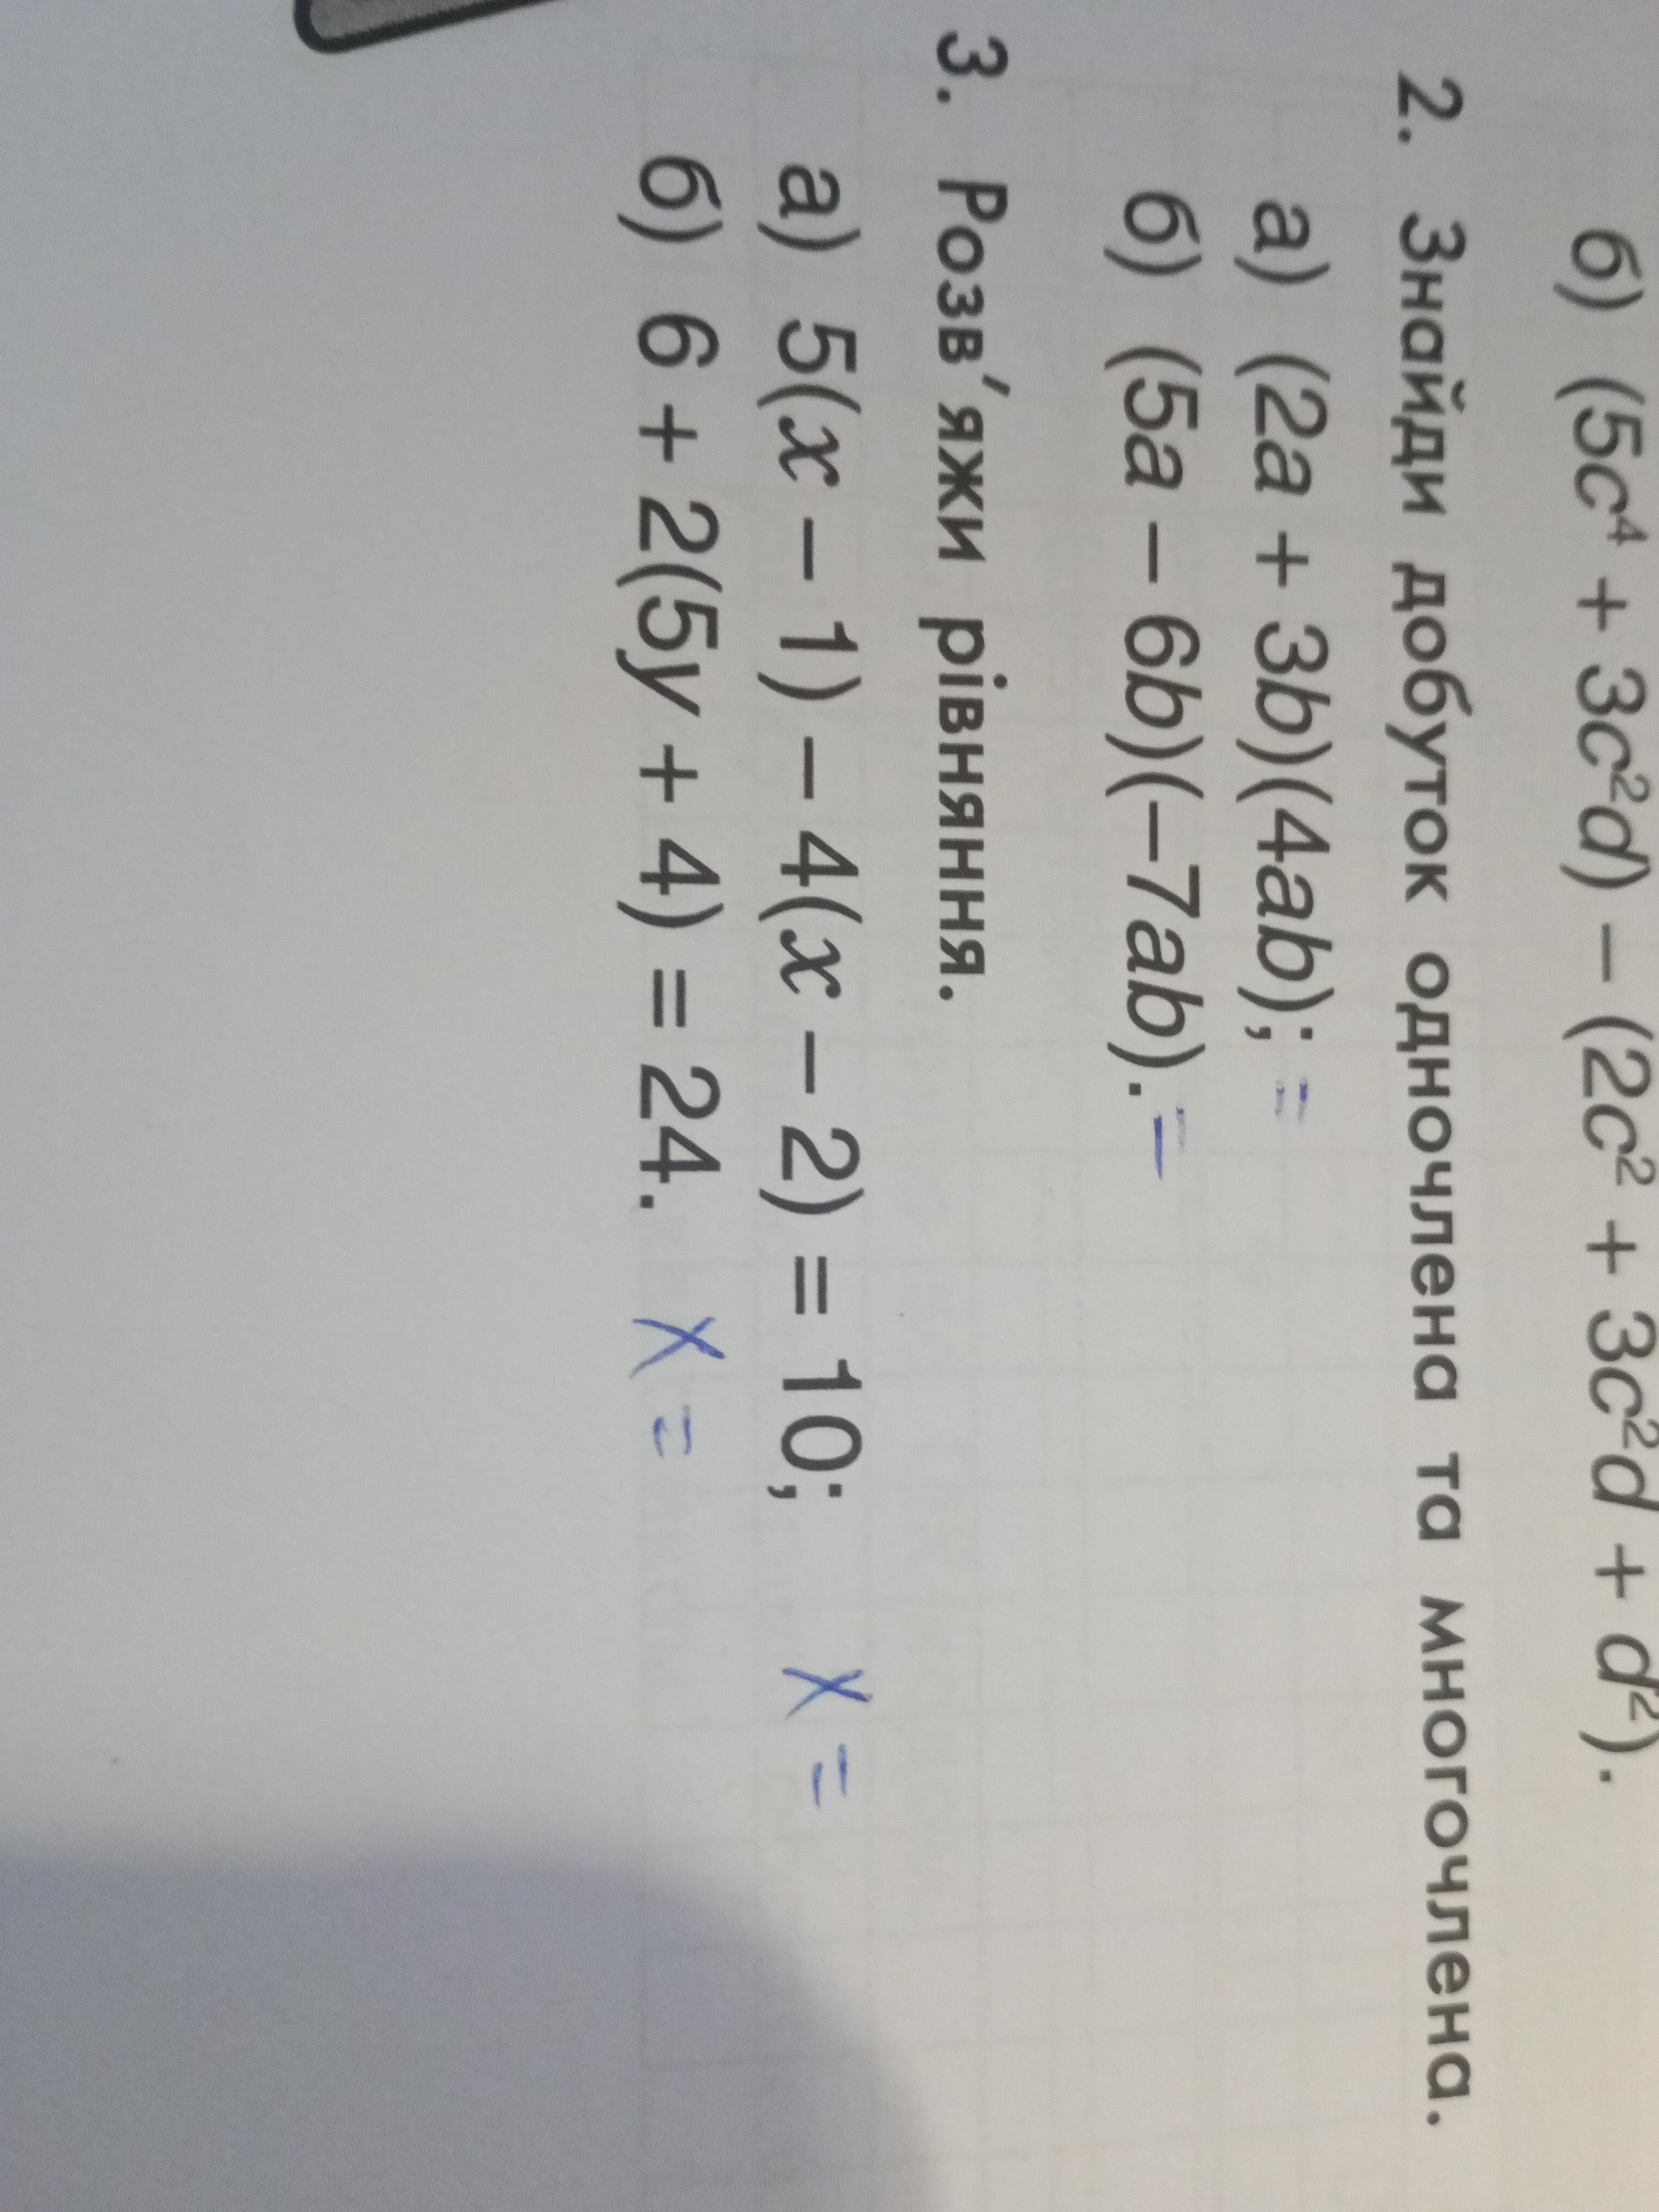 б) (5c⁴ + 3c²d) – (2c² + 3c²d + d²).
2. Знайди добуток одночлена та многочлена.
а) (2a + 3b)(4ab); =
б) (5a – 6b)(–7ab). =
3. Розв'яжи рівняння.
а) 5(x – 1) – 4(x – 2) = 10; x =
б) 6 + 2(5y + 4) = 24. x =